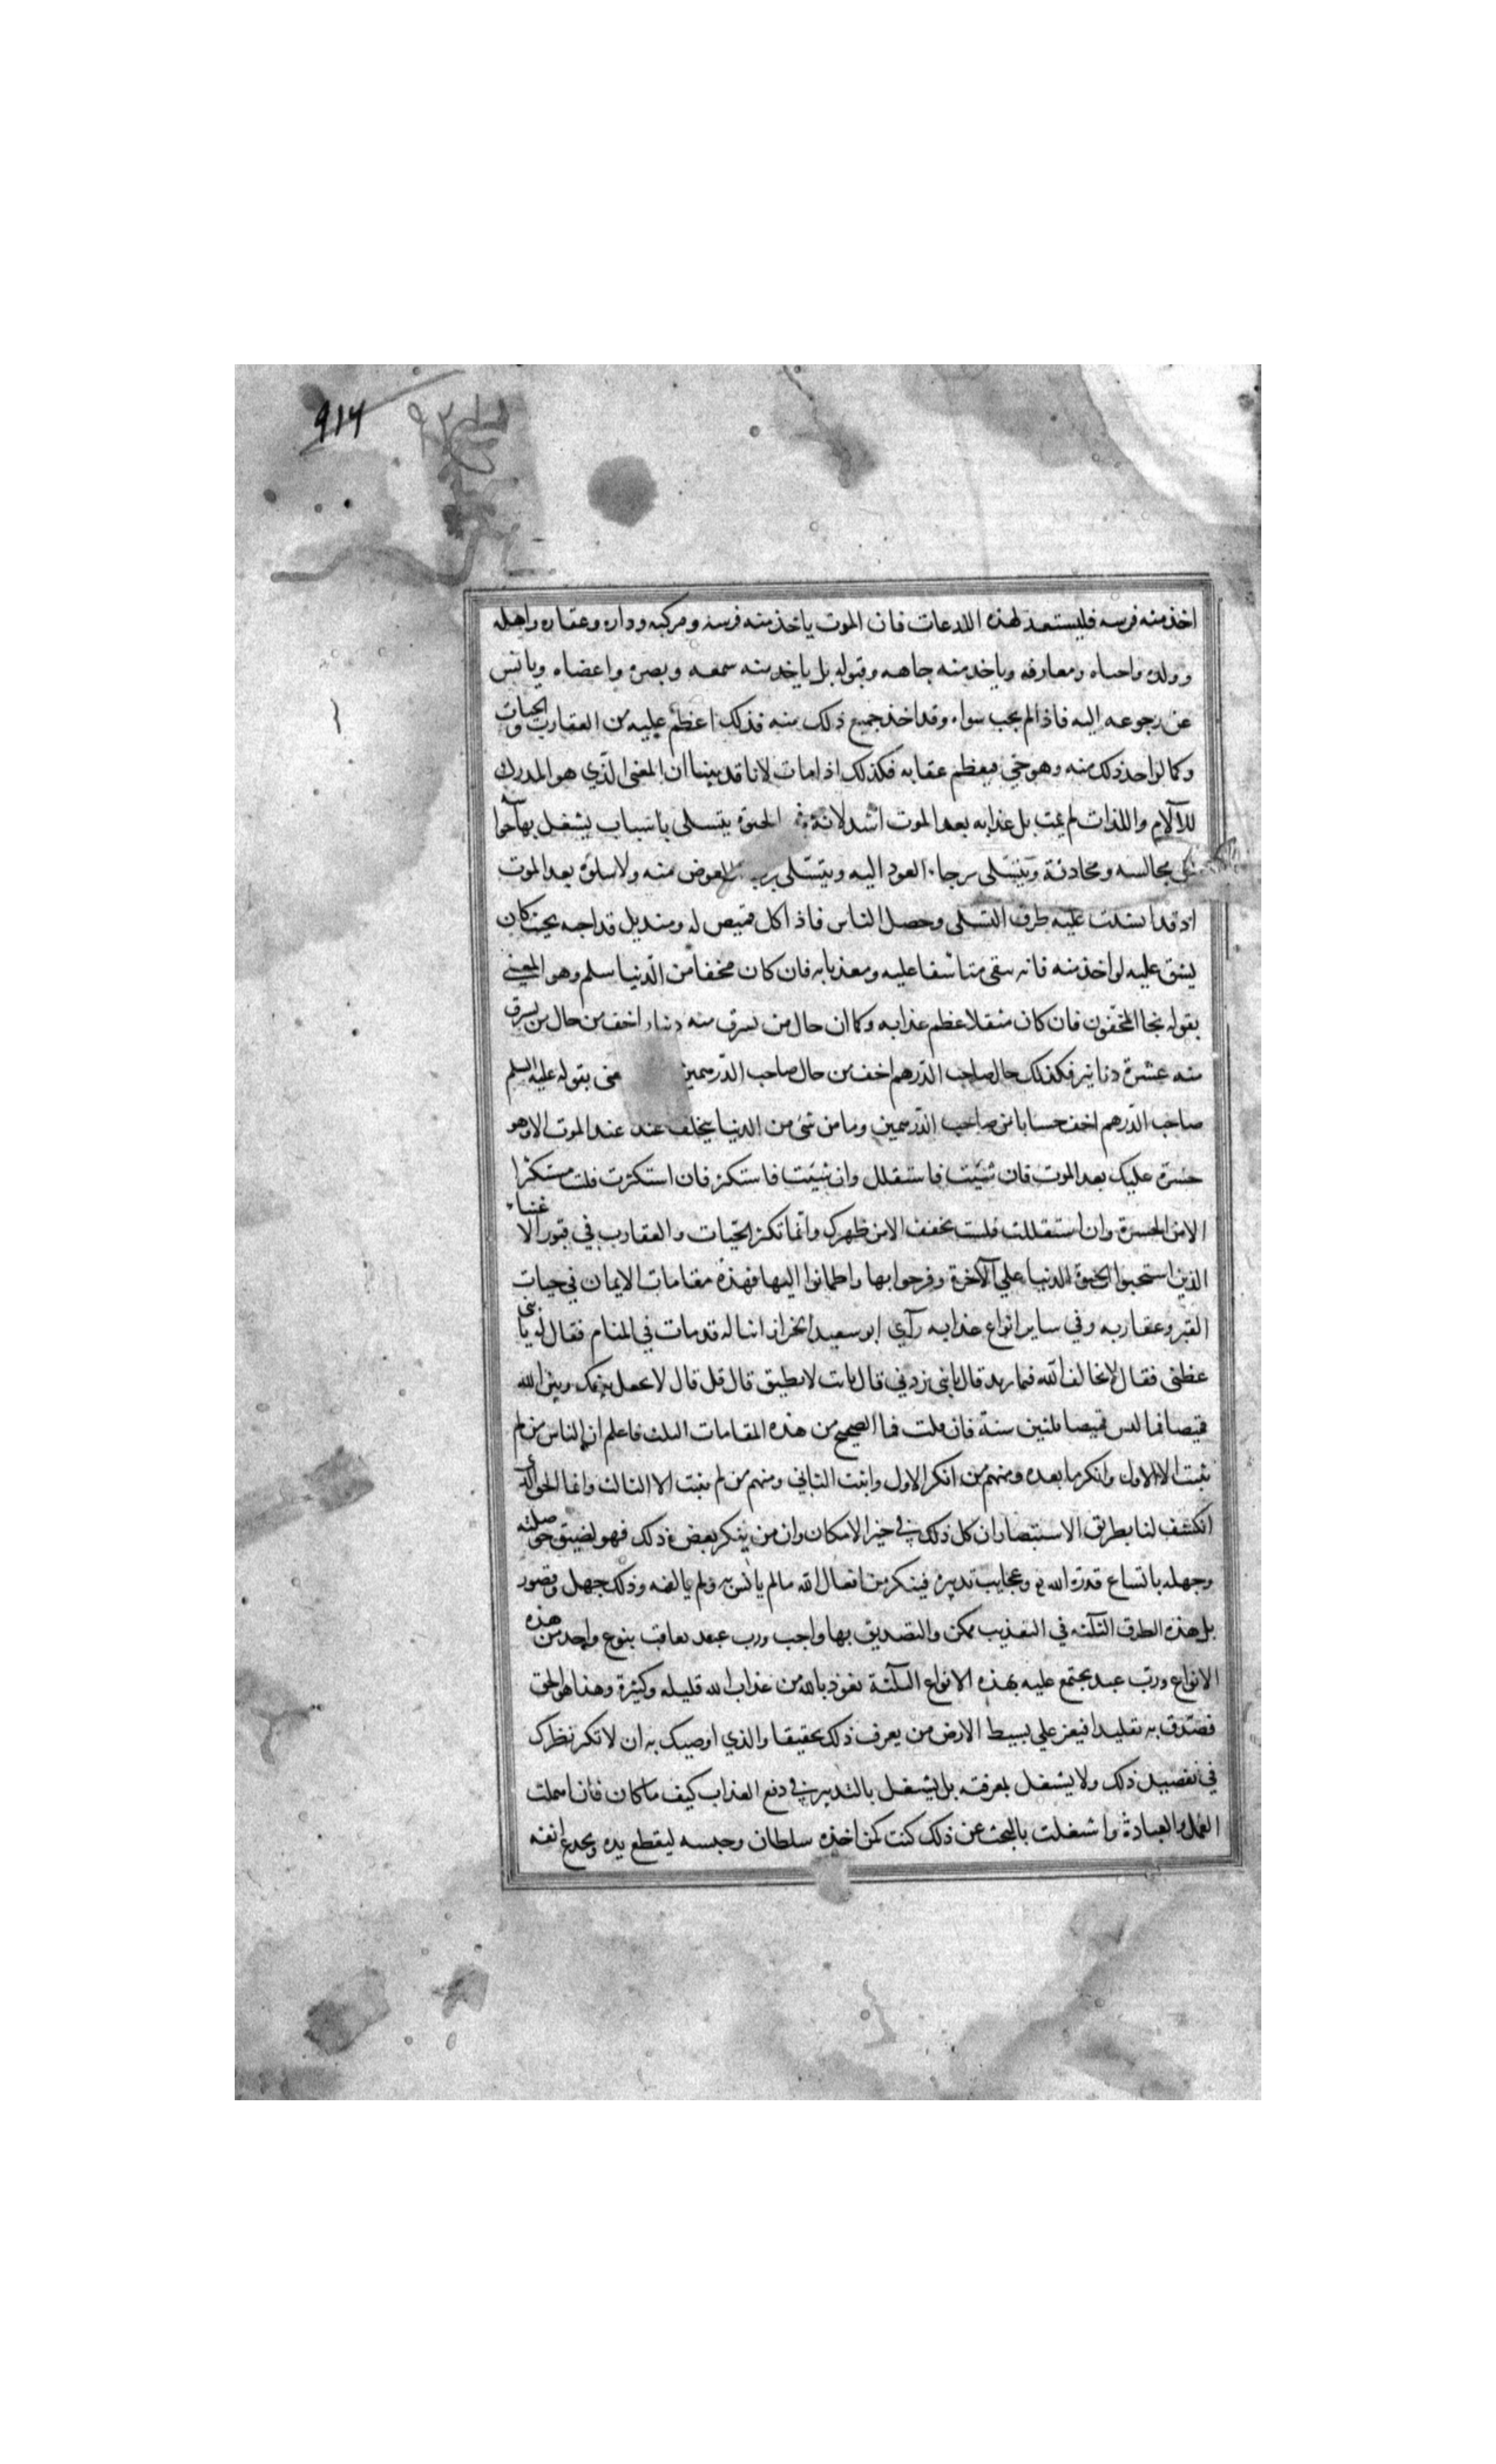 ٩١٧
اخذ منه فرسه فليستعد لهذه اللدغات فان الموت ياخذ منه فرسه ومركبه وداره وعقاره واهله
وولده واحباه ومعارفه وياخذ منه جاهه وقبوله بل ياخذ منه سمعه وبصره واعضاه ويانس
عن رجوعه اليه فاذا لم يحب سواه وقد اخذ جميع ذلك منه فذلك اعظم عليه من العقارب والحيات
وكما لو اخذ ذلك منه وهو حي فيعظم عقابه فكذلك اذا مات لانا قد بينا ان المعنى الذي هو المدرك
للآلام واللذات لم يمت بل عذابه بعد الموت اشد لانه في الحيوة يتسلى باسباب يشغل بها حواسه
من مجالسه ومحادثة ويتسلى برجاء العود اليه ويتسلى برجاء العوض منه ولا سلوة بعد الموت
اذ قد انسدت عليه طرق التسلى وحصل الياس فاذا كل قميص له ومنديل قد احبه بحيث كان
يشق عليه لو اخذ منه فانه يبقى متاسفا عليه ومعذبا به فان كان مخفا من الدنيا سلم وهو المعني
بقوله نجا المخفون فان كان مثقلا عظم عذابه وكما ان حال من يسرق منه دينار اخف من حال من يسرق
منه عشرة دنانير فكذلك حال صاحب الدرهم اخف من حال صاحب الدرهمين بقوله عليه السلم
صاحب الدرهم اخف حسابا من صاحب الدرهمين وما من شئ من الدنيا يخلف عنك عند الموت الا وهو
حسرة عليك بعد الموت فان شئت فاستقلل وان شئت فاستكثر فان استكثرت فلست مستكثرا
الا من الحسرة وان استقللت فلست تخفف الا من ظهرك وانما تكثر الحيات والعقارب في قبور الاغنياء
الذين استحبوا الحيوة الدنيا علي الآخرة وفرحوا بها واطمانوا اليها فهذه مقامات الايمان في حيات
القبر وعقاربه وفي ساير انواع عذابه رآي ابو سعيد الخراز ابنا له قد مات في المنام فقال له يا بني
عظني فقال لا تخالف الله فيما يريد قال يا بني زدني قال يا بت لا تطيق قال قل قال لا تجعل بينك وبين الله
قميصا فما لبس قميصا ثلثين سنة فان قلت فما الصحيح من هذه المقامات الثلث فاعلم ان الناس من لم
يثبت الا الاول وانكر ما بعده ومنهم من انكر الاول واثبت الثاني ومنهم من لم يثبت الا الثالث وانما الحق الذي
انكشف لنا بطريق الاستبصار ان كل ذلك في حيز الامكان وان من ينكر بعض ذلك فهو لضيق حوصلته
وجهله باتساع قدرة الله وعجايب تدبيره فينكر من افعال الله ما لم يانس به ولم يالفه وذلك جهل وقصور
بل هذه الطرق الثلثة في التعذيب ممكن والتصديق بها واجب ورب عبد يعاقب بنوع واحد من هذه
الانواع ورب عبد يجتمع عليه بهذه الانواع الثلثة نعوذ بالله من عذاب الله قليله وكثيره وهذا هو الحق
فصدق به تقليدا فيعز علي بسيط الارض من يعرف ذلك تحقيقا والذي اوصيك به ان لا تكثر نظرك
في تفصيل ذلك ولا يشغل بمعرفته بل يشغل بالتدبير في دفع العذاب كيف ما كان فان اهملت
العمل والعبادة واشغلت بالبحث عن ذلك كنت كمن اخذه سلطان وحبسه ليقطع يده ويجدع انفه